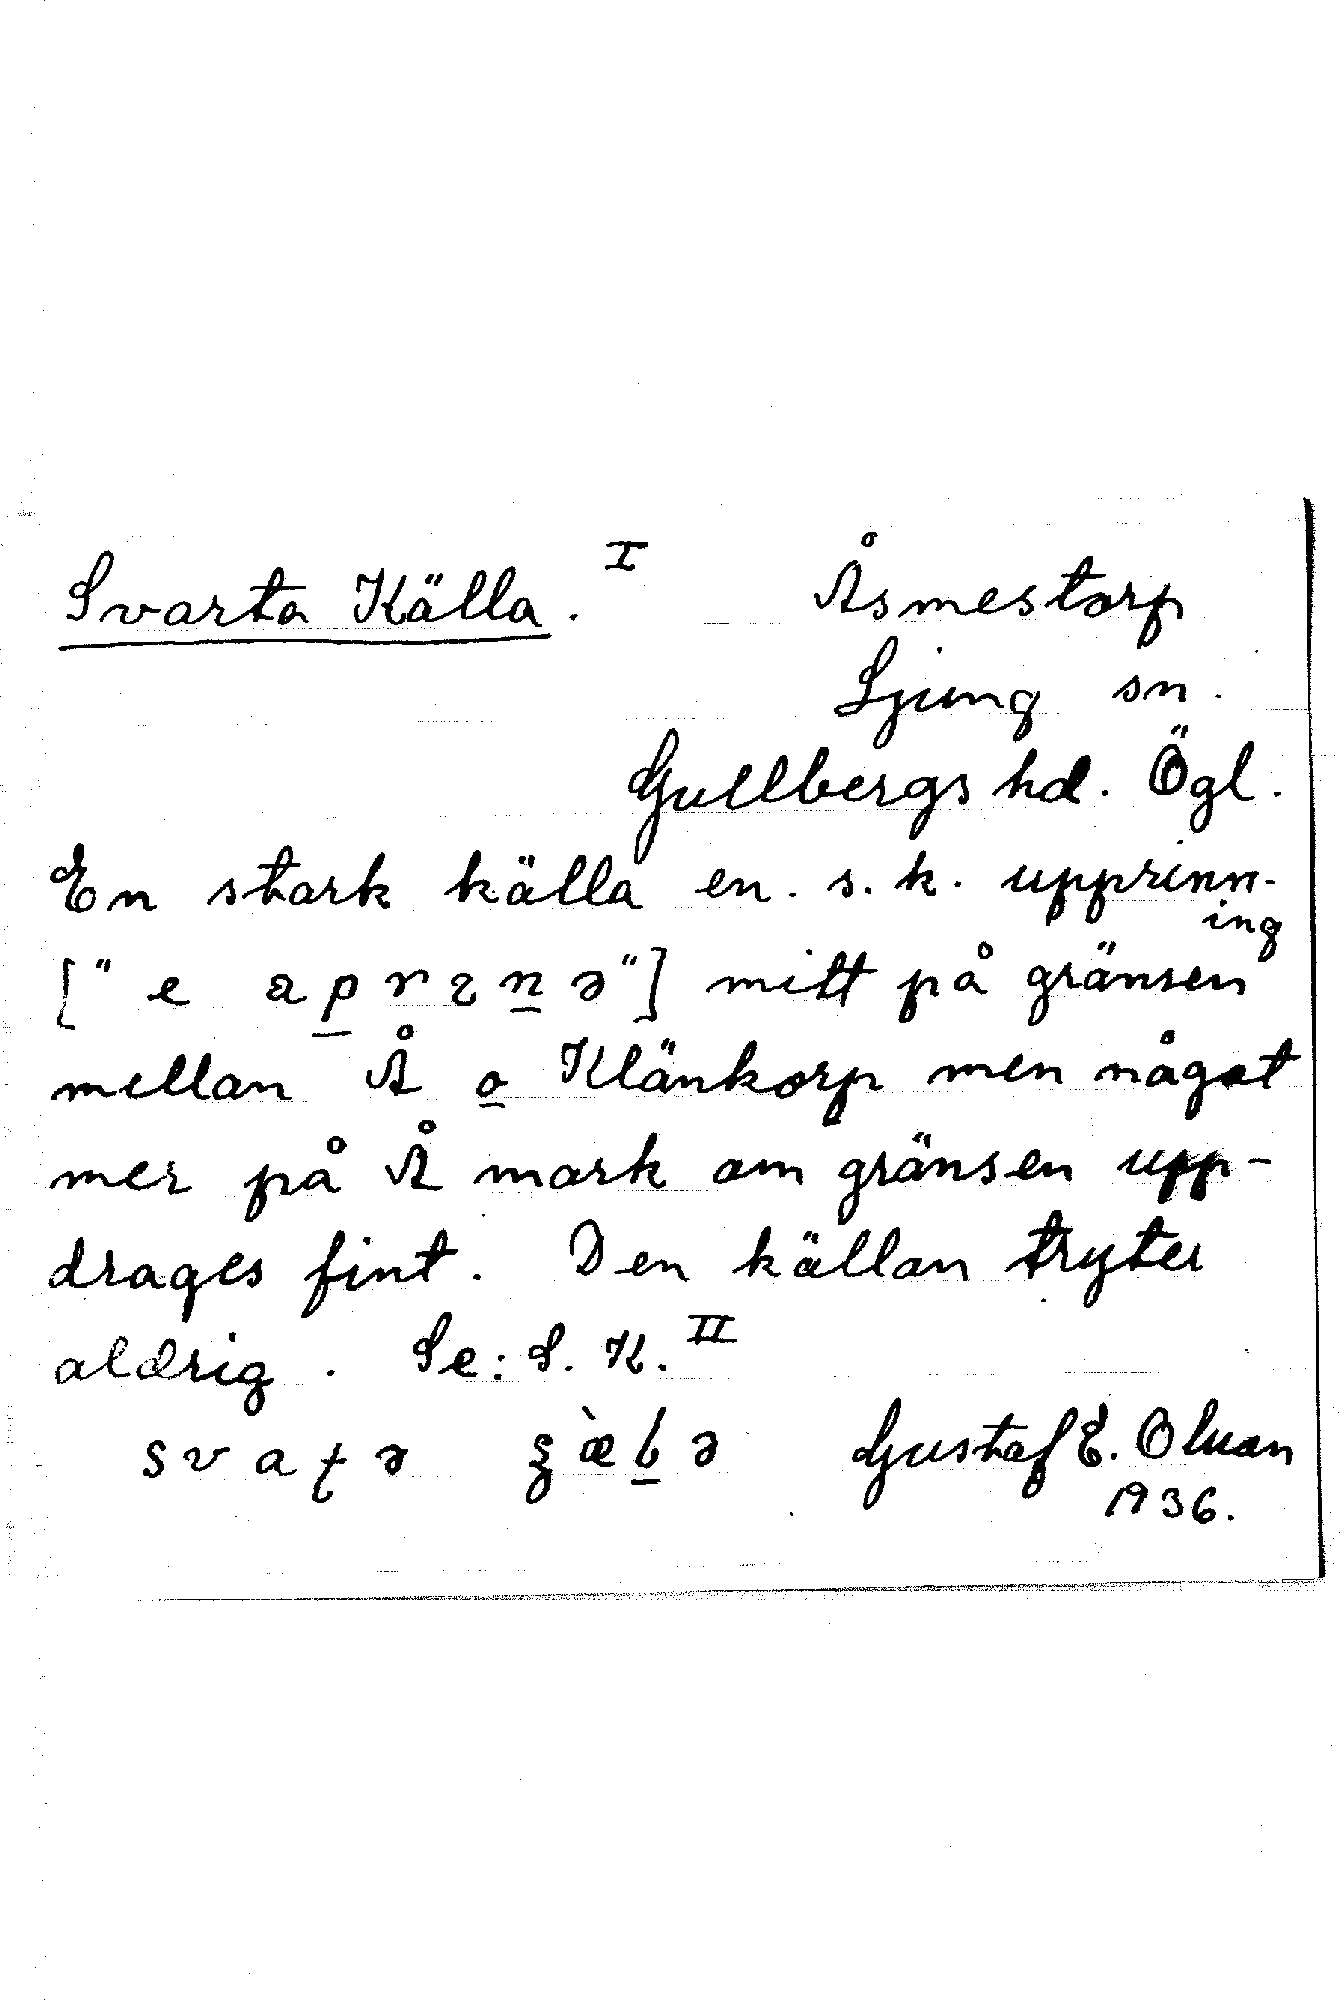 Svarta Källa. I Åsmestorp
Ljung sn.
Gullbergs hd. Ögl.
En stark källa en. s. k. upprinn-
ing
[" e a p r ɿ n ə "] mitt på gränsen
mellan Å o Klänkorp men något
mer på Å mark om gränsen upp-
drages fint. Den källan tryter
aldrig. Se: S. K. II
s v a ƫ ə Gustaf E. Olsson
1936.